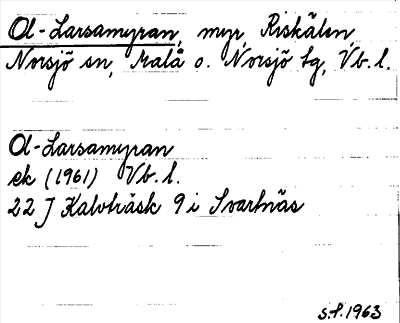 Ol-Larsamyran, myr, Riskälen,
Norsjö sn, Malå o. Norsjö tg, Vb. l.
Ol-Larsamyran
ek (1961) Vb. l.
22 J Kalvträsk 9 i Svartnäs
s.f. 1963